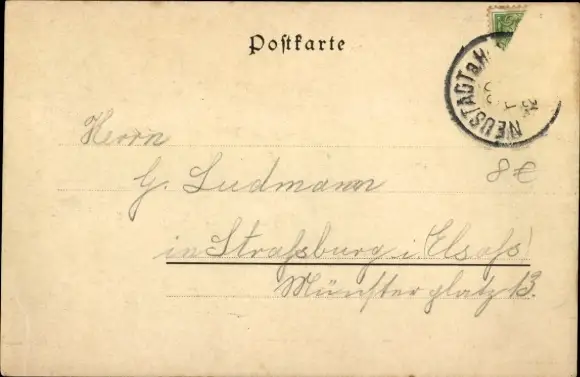 Postkarte
NEUSTADT a.H.
Herrn
G. Ludmann
8€
in Straßburg i. Elsaß
Münsterplatz 13.